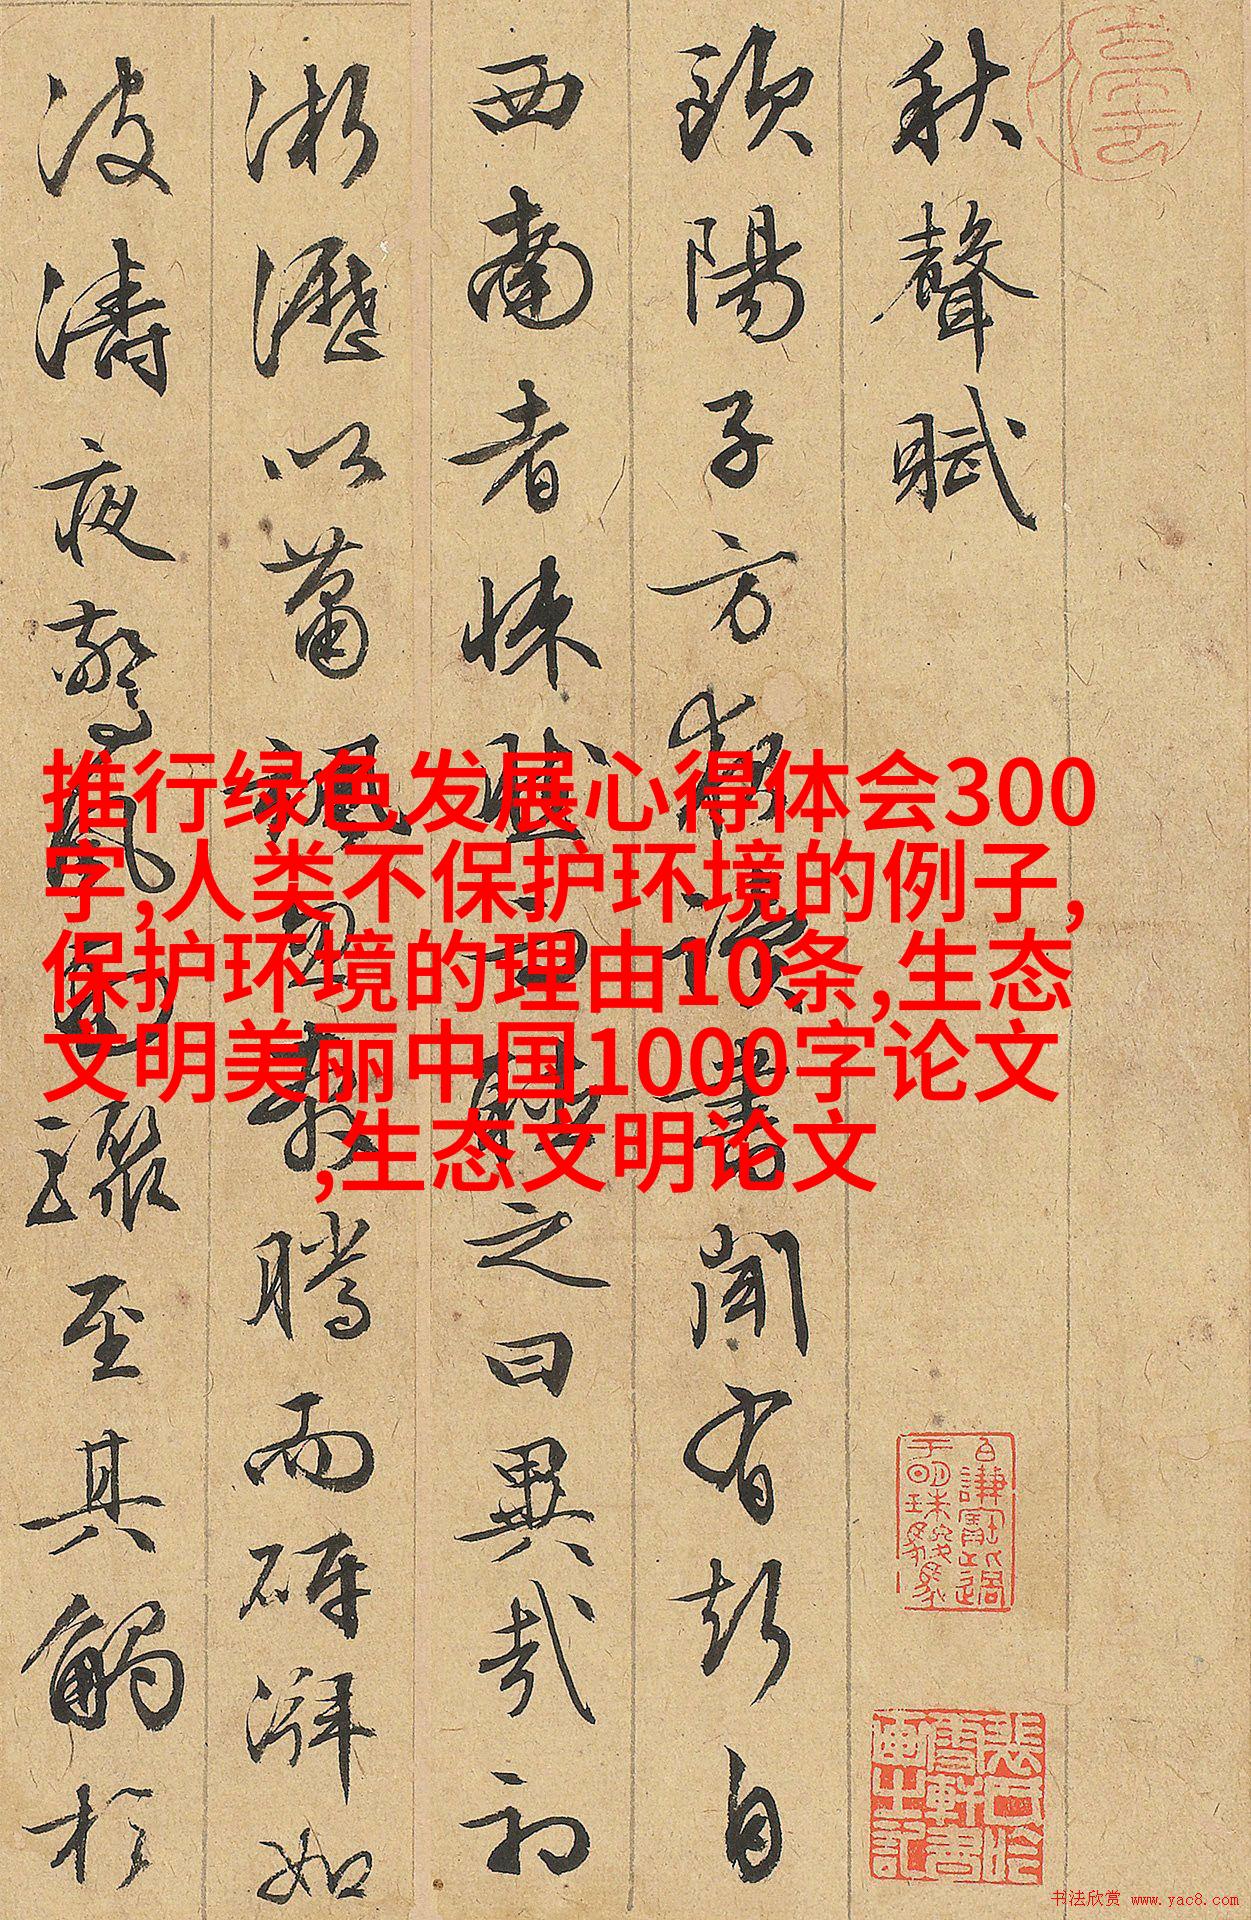 秋聲賦
歐陽子方夜讀書聞有聲自
西南者悚然而聽之曰異哉初
淅瀝以蕭颯忽奔騰而砰湃如
波濤夜驚風雨驟至其觸於
推行绿色发展心得体会300
字,人类不保护环境的例子,
保护环境的理由10条,生态
文明美丽中国1000字论文
,生态文明论文
书法欣赏 www.yac8.com